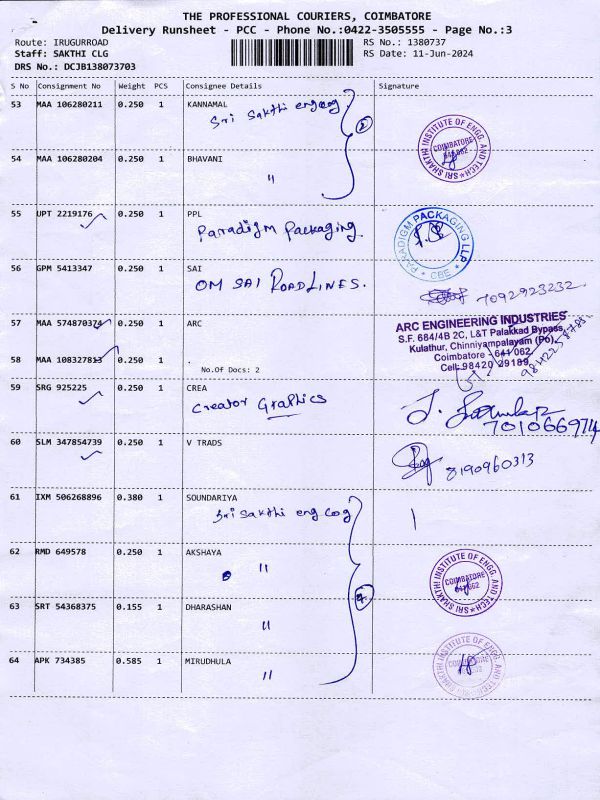 THE PROFESSIONAL COURIERS, COIMBATORE
Delivery Runsheet - PCC - Phone No.:0422-3505555 - Page No.:3
Route: IRUGURROAD
RS No.: 1380737
Staff: SAKTHI CLG
RS Date: 11-Jun-2024
DRS No.: DCJB138073703
S No Consignment No Weight PCS Consignee Details Signature
53 MAA 106280211 0.250 1 KANNAMAL
Sri Sakthi eng cog
2
SRI SHAKTHI INSTITUTE OF ENGG. AND TECH
COIMBATORE
641 062
54 MAA 106280204 0.250 1 BHAVANI
"
55 UPT 2219176 0.250 1 PPL
Paradigm Packaging
PARADIGM PACKAGING LLP
CBE
56 GPM 5413347 0.250 1 SAI
OM SAI ROADLINES.
7092923232
57 MAA 574870374 0.250 1 ARC
ARC ENGINEERING INDUSTRIES
S.F. 684/4B 2C, L&T Palakkad Bypass,
Kulathur, Chinniyampalayam (Po),
Coimbatore - 641 062
Cell: 98420 29189
58 MAA 108327813 0.250 1 .
No.Of Docs: 2
59 SRG 925225 0.250 1 CREA
Creator Graphics
701066974
60 SLM 347854739 0.250 1 V TRADS
8190960313
61 IXM 506268896 0.380 1 SOUNDARIYA
Sri Sakthi eng cog
62 RMD 649578 0.250 1 AKSHAYA
"
SRI SHAKTHI INSTITUTE OF ENGG. AND TECH
COIMBATORE
641 062
4
63 SRT 54368375 0.155 1 DHARASHAN
"
64 APK 734385 0.585 1 MIRUDHULA
"
SRI SHAKTHI INSTITUTE OF ENGG. AND TECH
COIMBATORE